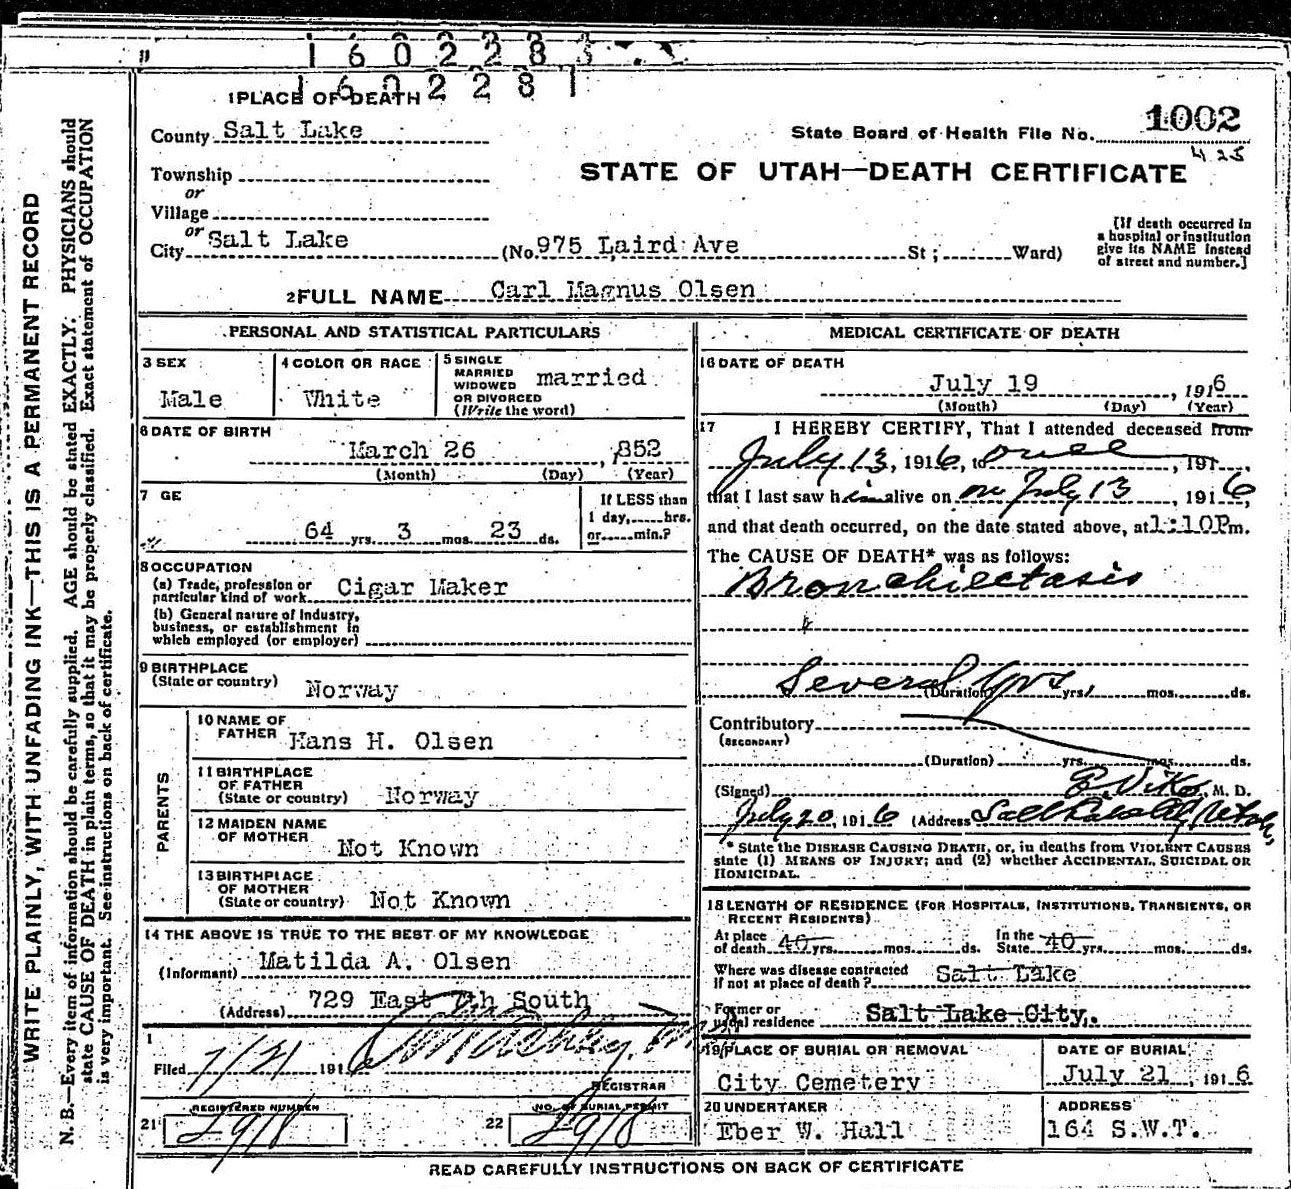 1 6 0 2 2 8 3
1 6 0 2 2 8 1
1 PLACE OF DEATH
County Salt Lake
State Board of Health File No. 1002
425
Township
or
Village
or
City Salt Lake (No. 975 Laird Ave St; Ward)
STATE OF UTAH—DEATH CERTIFICATE
[If death occurred in
a hospital or institution
give its NAME instead
of street and number.]
2 FULL NAME Carl Magnus Olsen
PERSONAL AND STATISTICAL PARTICULARS
3 SEX
Male
4 COLOR OR RACE
White
5 SINGLE
MARRIED
WIDOWED
OR DIVORCED
(Write the word)
married
6 DATE OF BIRTH
March 26, 1852
(Month) (Day) (Year)
7 GE
64 yrs. 3 mos. 23 ds.
If LESS than
1 day, hrs.
or min.?
8 OCCUPATION
(a) Trade, profession or
particular kind of work Cigar Maker
(b) General nature of Industry,
business, or establishment in
which employed (or employer)
9 BIRTHPLACE
(State or country) Norway
PARENTS
10 NAME OF
FATHER Hans H. Olsen
11 BIRTHPLACE
OF FATHER
(State or country) Norway
12 MAIDEN NAME
OF MOTHER Not Known
13 BIRTHPLACE
OF MOTHER
(State or country) Not Known
14 THE ABOVE IS TRUE TO THE BEST OF MY KNOWLEDGE
(Informant) Matilda A. Olsen
(Address) 729 East 7th South
Filed 7/21 1916
REGISTRAR
21 REGISTERED NUMBER
22 NO. OF BURIAL PERMIT
MEDICAL CERTIFICATE OF DEATH
16 DATE OF DEATH
July 19, 1916
(Month) (Day) (Year)
17 I HEREBY CERTIFY, That I attended deceased from
July 13, 1916, to once, 191
that I last saw him alive on on July 13, 1916,
and that death occurred, on the date stated above, at 1:10P m.
The CAUSE OF DEATH* was as follows:
Bronchiectasis
Several Yrs
(Duration) yrs. mos. ds.
Contributory
(SECONDARY)
(Duration) yrs. mos. ds.
(Signed) E. Viko, M. D.
July 20, 1916 (Address Salt Lake City, Utah,
* State the DISEASE CAUSING DEATH, or, in deaths from VIOLENT CAUSES
state (1) MEANS OF INJURY; and (2) whether ACCIDENTAL, SUICIDAL OR
HOMICIDAL.
18 LENGTH OF RESIDENCE (FOR HOSPITALS, INSTITUTIONS, TRANSIENTS, OR
RECENT RESIDENTS)
At place
of death 40 yrs. mos. ds. In the
State 40 yrs. mos. ds.
Where was disease contracted
If not at place of death? Salt Lake
Former or
usual residence Salt Lake City.
19 PLACE OF BURIAL OR REMOVAL
City Cemetery
DATE OF BURIAL
July 21, 1916
20 UNDERTAKER
Eber W. Hall
ADDRESS
164 S.W.T.
READ CAREFULLY INSTRUCTIONS ON BACK OF CERTIFICATE
WRITE PLAINLY, WITH UNFADING INK—THIS IS A PERMANENT RECORD
N. B.—Every item of information should be carefully supplied. AGE should be stated EXACTLY. PHYSICIANS should
state CAUSE OF DEATH in plain terms, so that it may be properly classified. Exact statement of OCCUPATION
is very important. See instructions on back of certificate.